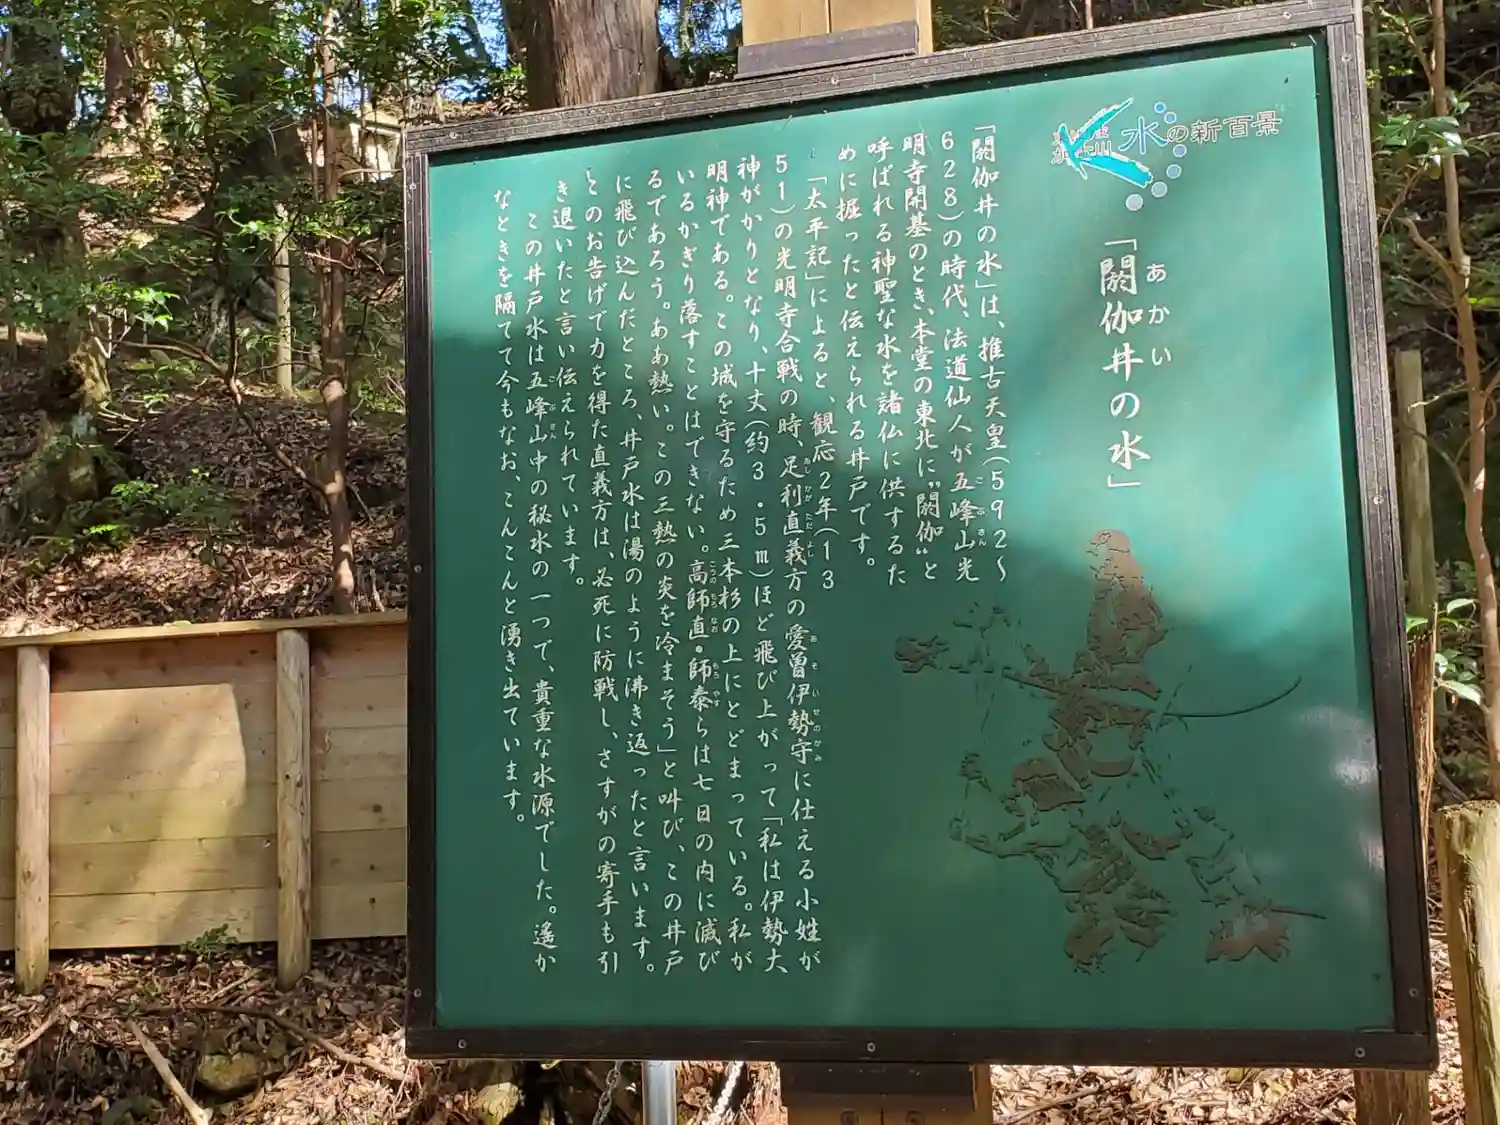 水の新百景
「閼伽井の水」
あかい
「閼伽井の水」は、推古天皇(592〜
628)の時代、法道仙人が五峰山光
ごぶさん
明寺開基のとき、本堂の東北に〝閼伽〟と
呼ばれる神聖な水を諸仏に供するた
めに掘ったと伝えられる井戸です。
「太平記」によると、観応2年(13
51)の光明寺合戦の時、足利直義方の愛曽伊勢守に仕える小姓が
あしかがただよし
あそいせのかみ
神がかりとなり、十丈(約3.5m)ほど飛び上がって「私は伊勢大
明神である。この城を守るため三本杉の上にとどまっている。私が
いるかぎり落すことはできない。高師直・師泰らは七日の内に滅び
こうのもろなお
もろやす
るであろう。ああ熱い。この三熱の炎を冷まそう」と叫び、この井戸
に飛び込んだところ、井戸水は湯のように沸き返ったと言います。
とのお告げで力を得た直義方は、必死に防戦し、さすがの寄手も引
き退いたと言い伝えられています。
この井戸水は五峰山中の秘水の一つで、貴重な水源でした。遙か
ごぶさん
なときを隔てて今もなお、こんこんと湧き出ています。